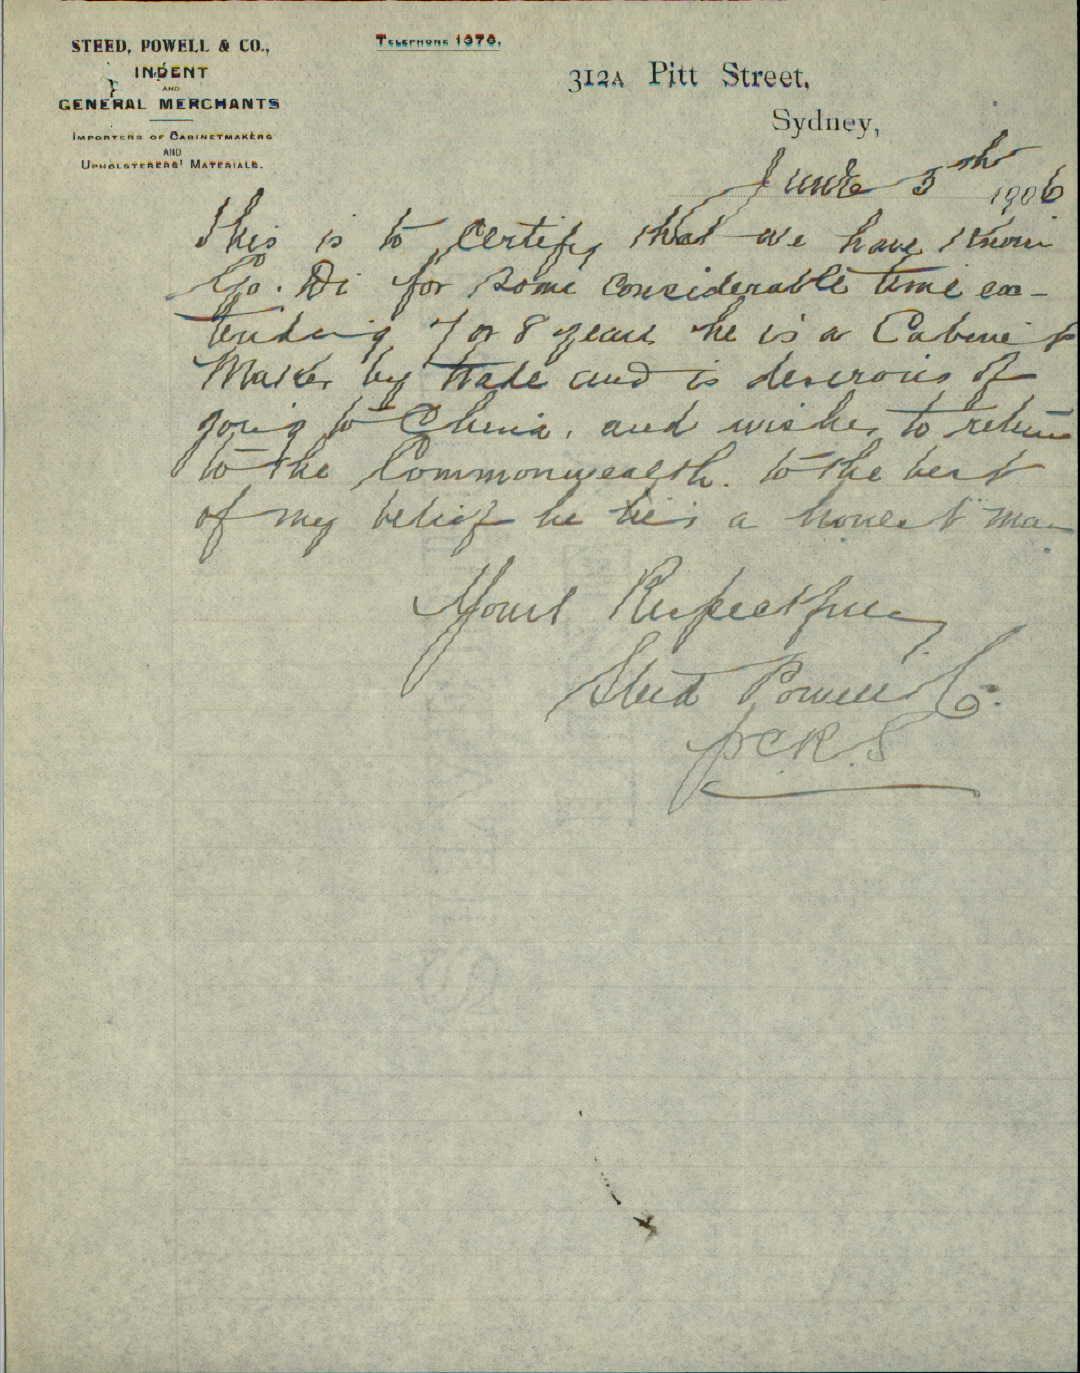 STEED, POWELL & CO.,
INDENT
AND
GENERAL MERCHANTS
IMPORTERS OF CABINETMAKERS
AND
UPHOLSTERERS' MATERIALS.
TELEPHONE 1878.
312A Pitt Street,
Sydney,
June 5th 1906
This is to Certify that we have known
Go. Di for some considerable time ex-
tending 7 or 8 years he is a Cabinet
Maker by trade and is deserous of
going to China, and wishes to return
to the Commonwealth. to the best
of my belief he he is a honest man
Yours Respectfully
Steed Powell & Co.
p C.R.S